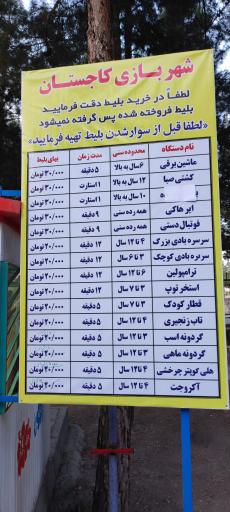 شهر بازی کاجستان
لطفاً در خرید بلیط دقت فرمایید
بلیط فروخته شده پس گرفته نمیشود
«لطفا قبل از سوارشدن بلیط تهیه فرمایید»
نام دستگاه محدوده سنی مدت زمان بهای بلیط
ماشین برقی ۶ سال به بالا ۵ دقیقه ۳۰/۰۰۰ تومان
کشتی صبا ۱۲ سال به بالا ۱۱ استارت ۳۰/۰۰۰ تومان
۱۰ سال به بالا ۱۱ استارت ۳۰/۰۰۰ تومان
ایرهاکی همه رده سنی ۹ دقیقه ۳۰/۰۰۰ تومان
فوتبال دستی همه رده سنی ۹ دقیقه ۲۰/۰۰۰ تومان
سرسره بادی بزرگ ۴ تا ۱۲ سال ۱۲ دقیقه ۲۰/۰۰۰ تومان
سرسره بادی کوچک ۳ تا ۶ سال ۱۲ دقیقه ۲۰/۰۰۰ تومان
ترامپولین ۶ تا ۱۲ سال ۱۲ دقیقه ۲۰/۰۰۰ تومان
استخر توپ ۳ تا ۷ سال ۱۲ دقیقه ۲۰/۰۰۰ تومان
قطار کودک ۳ تا ۷ سال ۵ دقیقه ۲۰/۰۰۰ تومان
تاب زنجیری ۴ تا ۱۲ سال ۵ دقیقه ۲۰/۰۰۰ تومان
گردونه اسب ۳ تا ۱۲ سال ۵ دقیقه ۲۰/۰۰۰ تومان
گردونه ماهی ۳ تا ۱۲ سال ۵ دقیقه ۲۰/۰۰۰ تومان
هلی کوپتر چرخشی ۴ تا ۱۲ سال ۵ دقیقه ۲۰/۰۰۰ تومان
آکروجت ۴ تا ۱۲ سال ۵ دقیقه ۲۰/۰۰۰ تومان